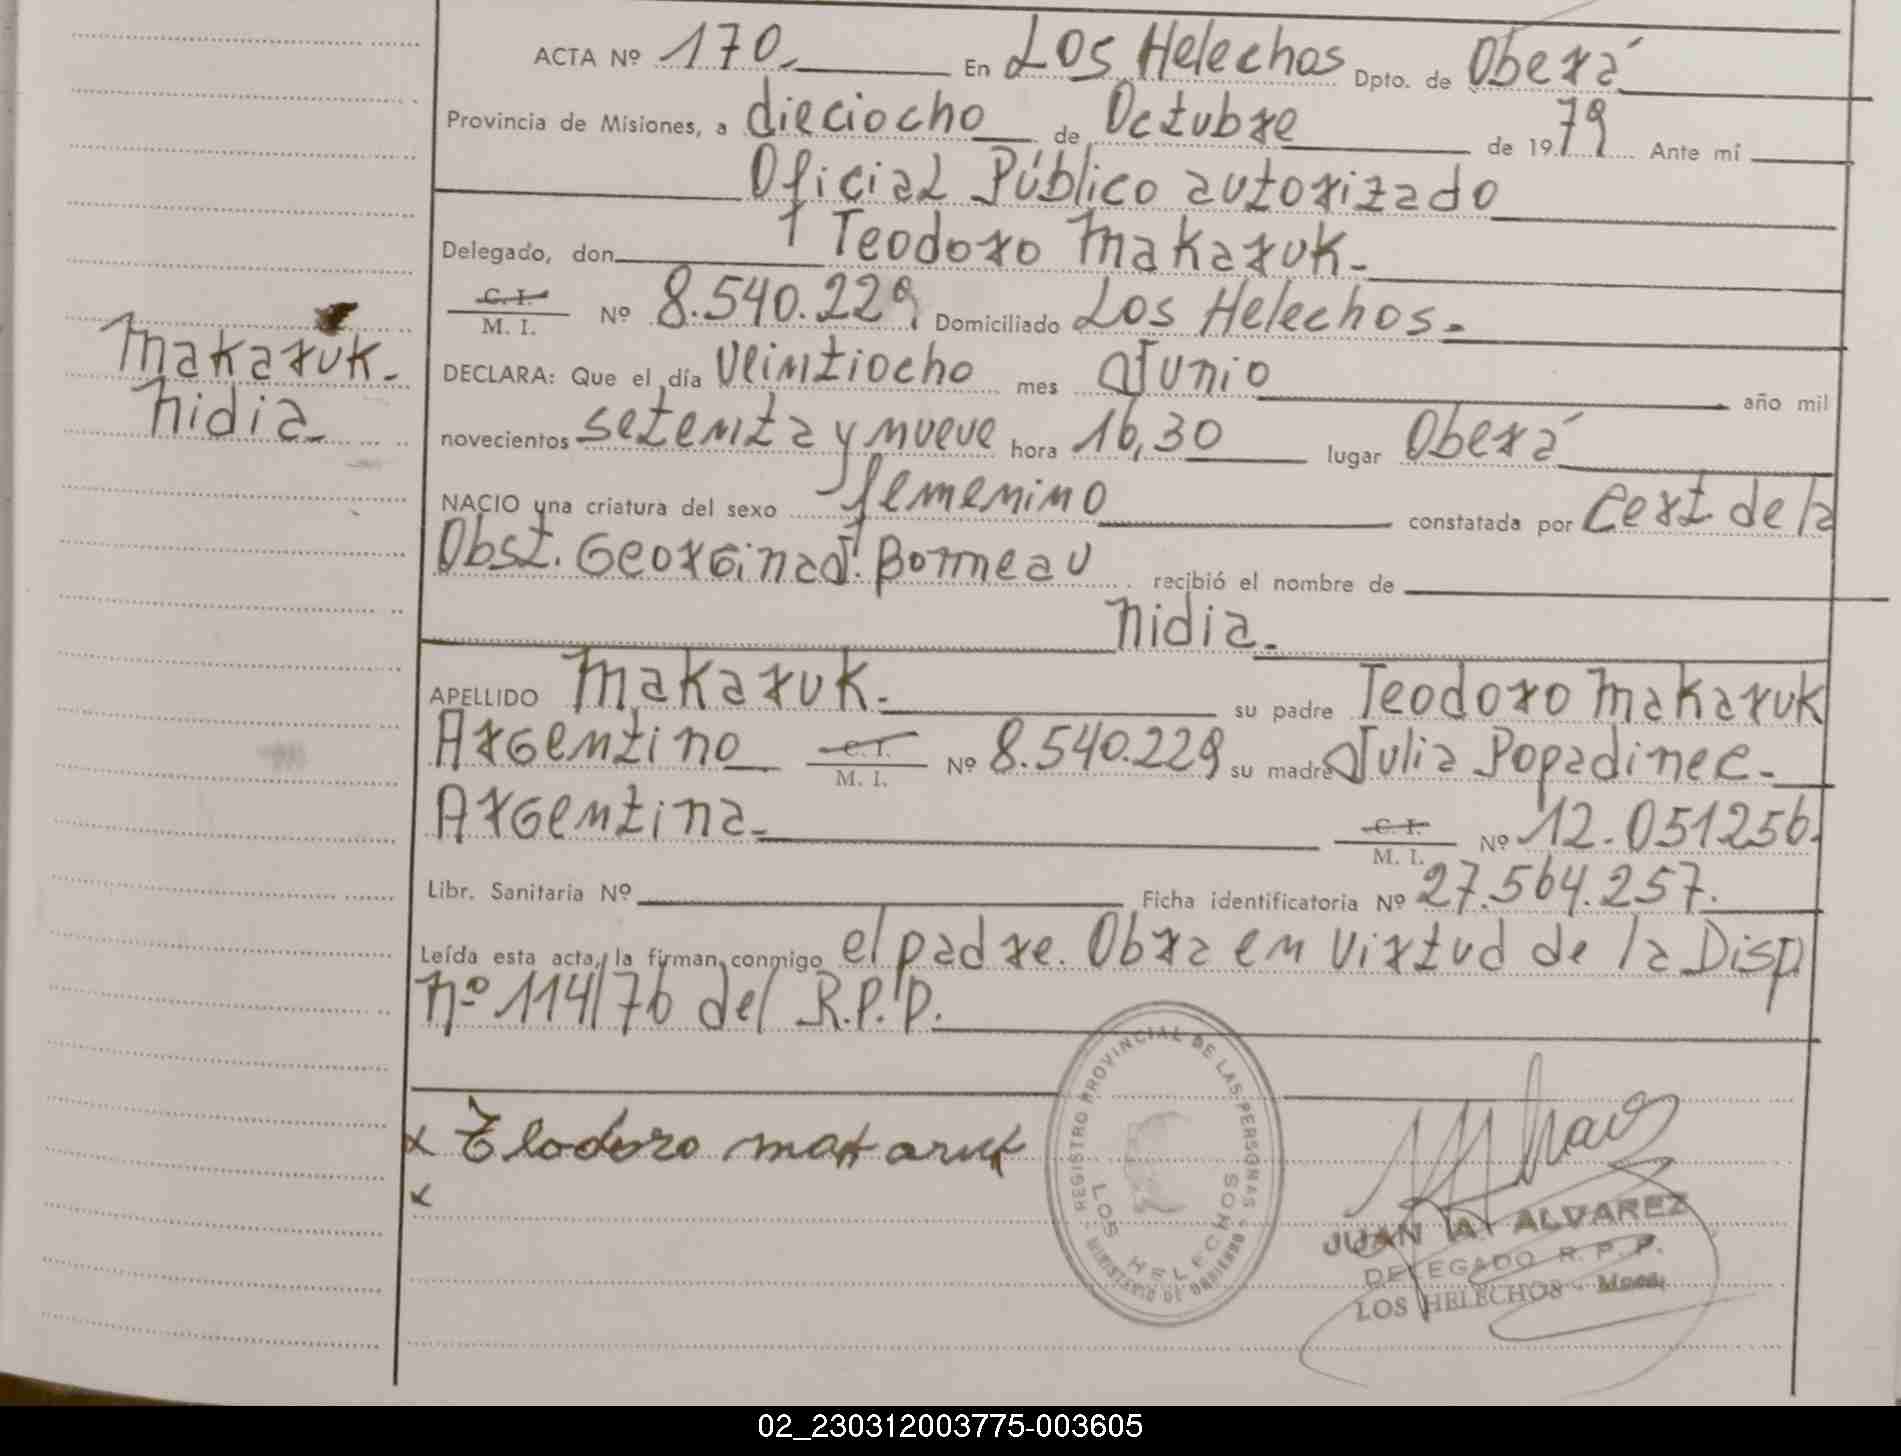 ACTA Nº 170. En Los Helechos Dpto. de Oberá
Provincia de Misiones, a dieciocho de Octubre de 1979 Ante mí
Oficial Público autorizado
Delegado, don Teodoro Makaruk.
C. I.
M. I. Nº 8.540.229. Domiciliado Los Helechos.
Makaruk.
Nidia.
DECLARA: Que el día veintiocho mes Junio año mil
novecientos setenta y nueve hora 16,30 lugar Oberá
NACIO una criatura del sexo femenino constatada por Cert de la
Obst. Georgina J. Bonneau recibió el nombre de
Nidia.
APELLIDO Makaruk. su padre Teodoro Makaruk
Argentino C. I. M. I. Nº 8.540.229 su madre Julia Popadinec.
Argentina. C. I. M. I. Nº 12.051256.
Libr. Sanitaria Nº Ficha identificatoria Nº 27.564.257.
Leída esta acta, la firman conmigo el padre. Obra en virtud de la Disp
Nº 114/76 del R.P.P.
REGISTRO PROVINCIAL DE LAS PERSONAS
LOS HELECHOS
MINISTERIO DE GOBIERNO
x Teodoro makaruk
x
JUAN A. ALVAREZ
DELEGADO R. P. P.
LOS HELECHOS - Mnes.
02_230312003775-003605